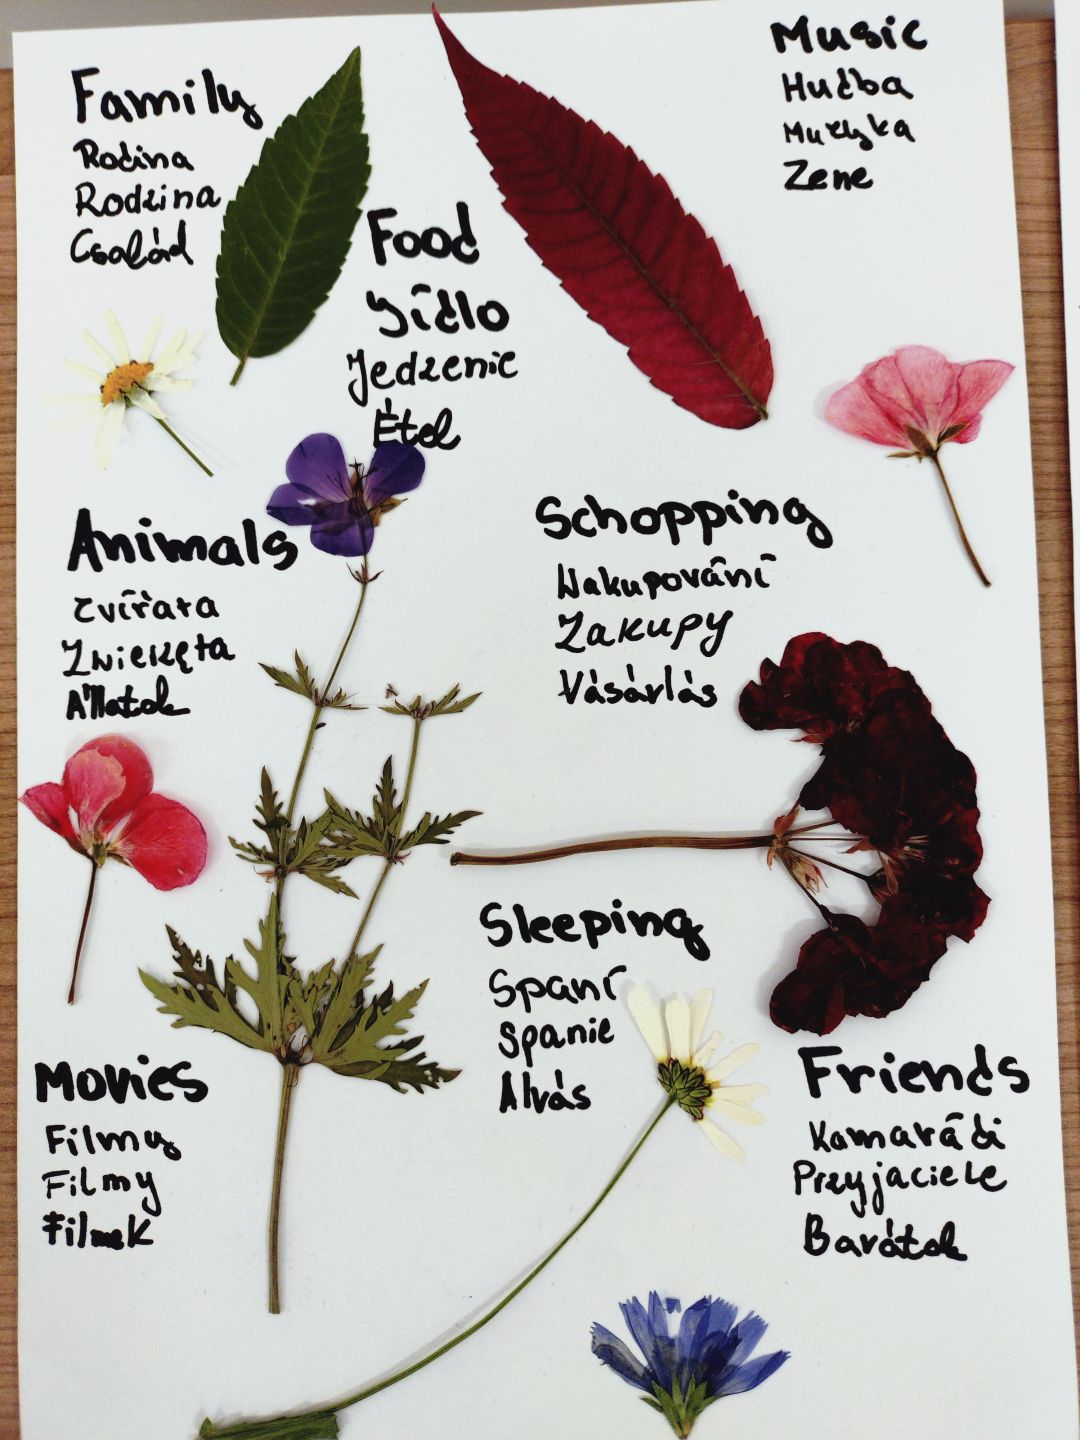 Family
Rodina
Rodzina
Család
Food
Jídlo
Jedzenie
Étel
Music
Hudba
Muzyka
Zene
Animals
Zvířata
Zwierzęta
Állatok
Schopping
Nakupování
Zakupy
Vásárlás
Sleeping
Spaní
Spanie
Alvás
Movies
Filmy
Filmy
Filmek
Friends
Kamarádi
Przyjaciele
Barátok